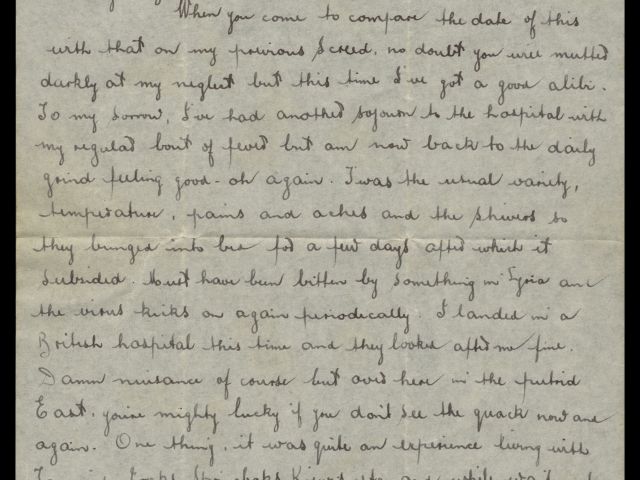 When you come to compare the date of this
with that on my previous screed, no doubt you will mutter
darkly at my neglect but this time I've got a good alibi.
To my sorrow, I've had another sojourn to the hospital with
my regular bout of fever but am now back to the daily
grind feeling good-oh again. 'Twas the usual variety,
temperature, pains and aches and the shivers so
they bunged into bed for a few days after which it
subsided. Must have been bitten by something in Syria and
the virus kicks on again periodically. I landed in a
British hospital this time and they looked after me fine.
Damn nuisance of course but over here in the putrid
East, you're mighty lucky if you don't see the quack now and
again. One thing, it was quite an experience living with